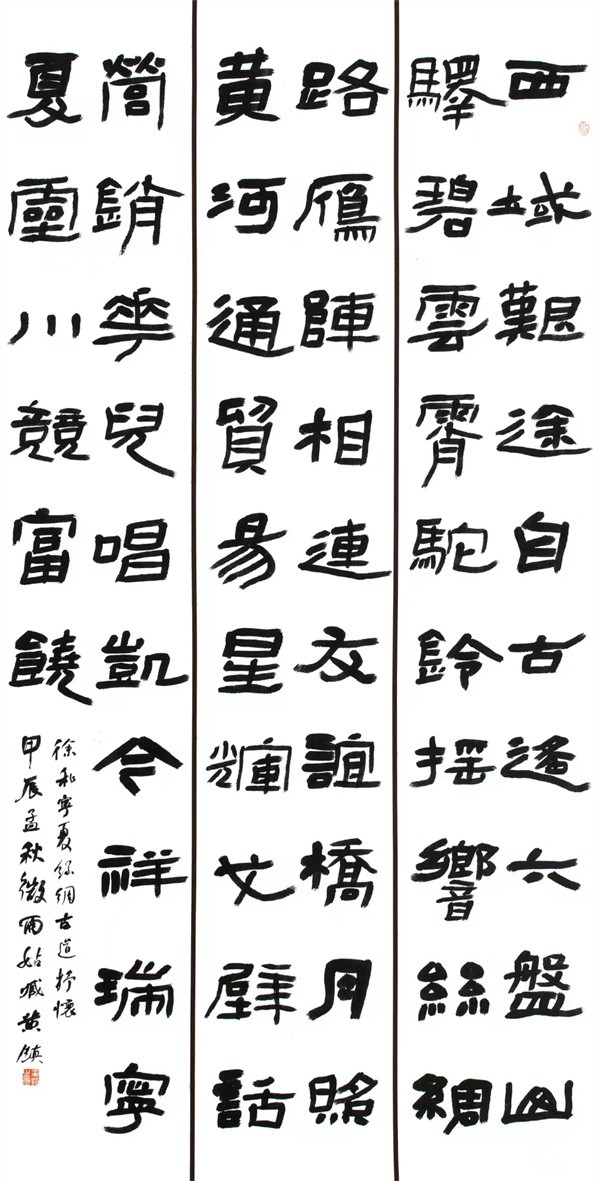 西域艱途自古遙六盤山
驛碧雲霄駝鈴搖響絲綢
路鴈陣相連友誼橋月照
黄河通貿易星輝文壁話
營銷華兒唱凱今祥瑞寧
夏靈川競富饒
徐和寧夏絲綢古道抒懷
甲辰孟秋微雨姑臧黄鎮